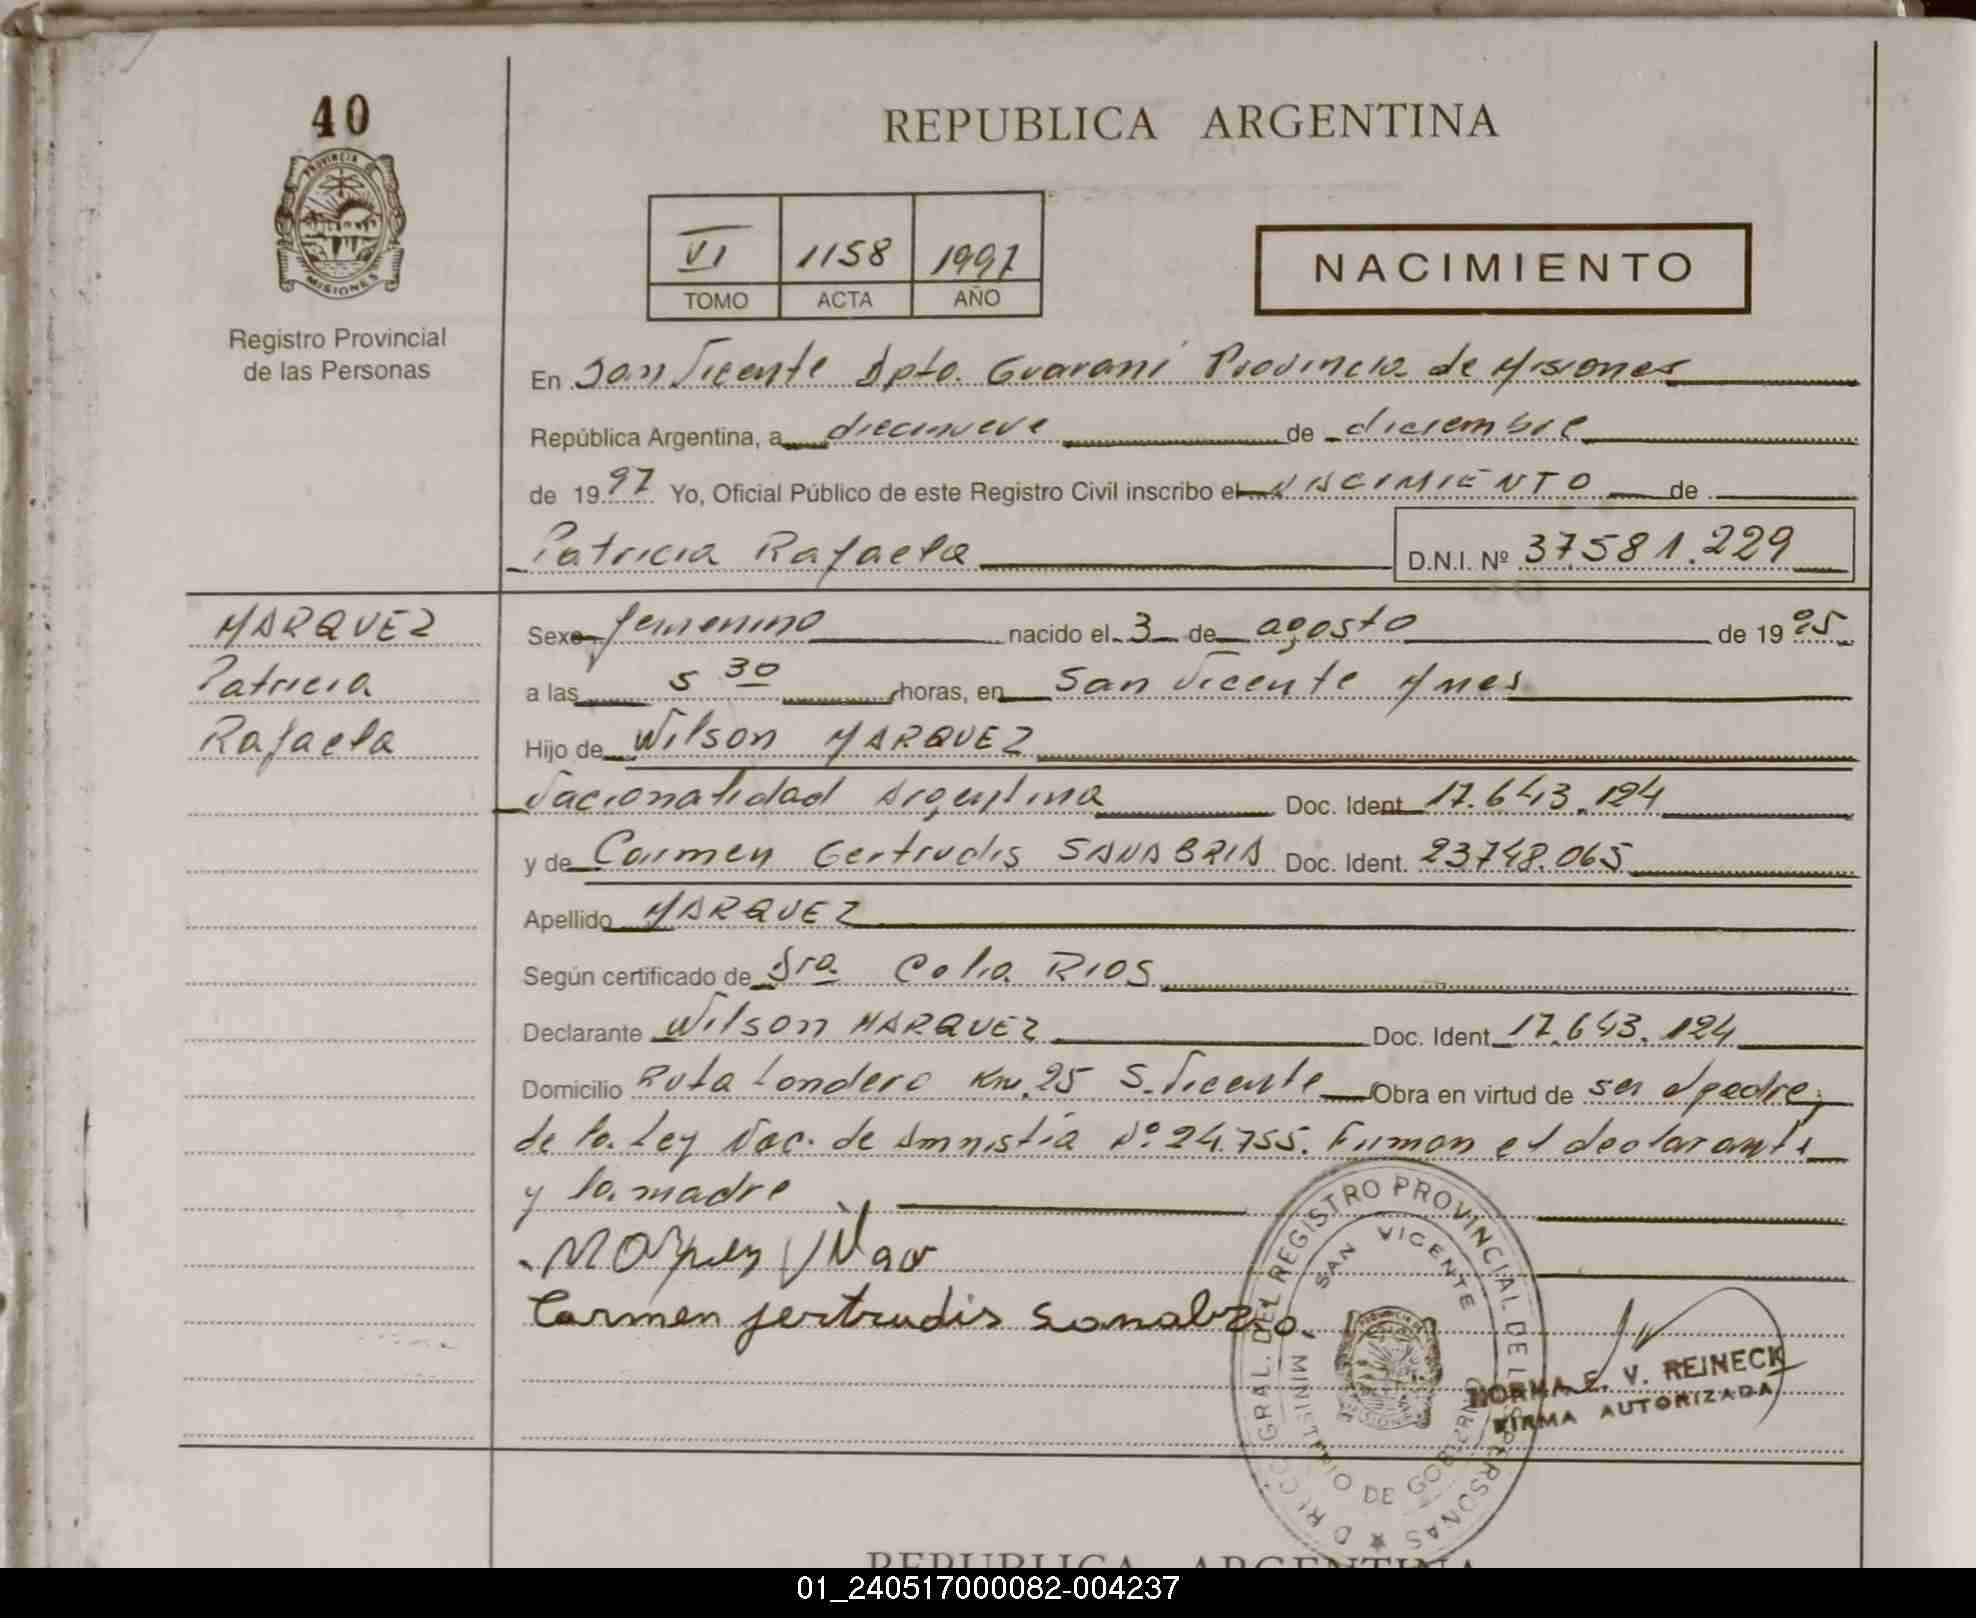 40
PROVINCIA
MISIONES
Registro Provincial
de las Personas
REPUBLICA ARGENTINA
VI 1158 1997
TOMO ACTA AÑO
NACIMIENTO
En San Vicente Dpto. Guarani Provincia de Misiones
República Argentina, a diecinueve de diciembre
de 1997 Yo, Oficial Público de este Registro Civil inscribo el NACIMIENTO de
Patricia Rafaela D.N.I. Nº 37.581.229
MARQUEZ
Patricia
Rafaela
Sexo femenino nacido el 3 de agosto de 1995
a las 5 30 horas, en San Vicente Mnes
Hijo de Wilson MARQUEZ
Nacionalidad Argentina Doc. Ident. 17.643.124
y de Carmen Gertrudis SANABRIA Doc. Ident. 23748.065
Apellido MARQUEZ
Según certificado de Sra. Celia RIOS
Declarante Wilson MARQUEZ Doc. Ident. 17.643.124
Domicilio Ruta Londero Km.25 S.Vicente Obra en virtud de ser el padre;
de la Ley Nac. de Amnistia Nº 24.755. Firman el declarante
y la madre
Carmen jertrudis Sanabria.
DIRECC. GRAL. DEL REGISTRO PROVINCIAL DE LAS PERSONAS
SAN VICENTE
MINISTERIO DE GOBIERNO
NORMA E. V. REINECK
FIRMA AUTORIZADA
REPUBLICA ARGENTINA
01_240517000082-004237